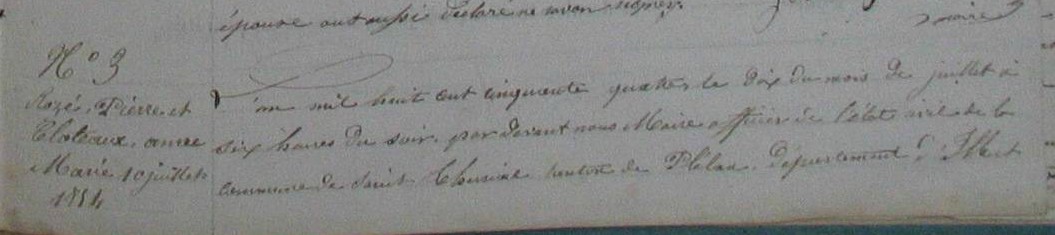 épouse ont aussi déclaré ne savoir signer.
maire
N° 3
Razé, Pierre et
anne
Marié 10 juillet
1854
L'an mil huit cent cinquante quatre le dix du mois de juillet à
six heures du soir, par devant nous Maire officier de l'état civil de la
commune de Saint Thurial canton de Plélan, département d'Ille et